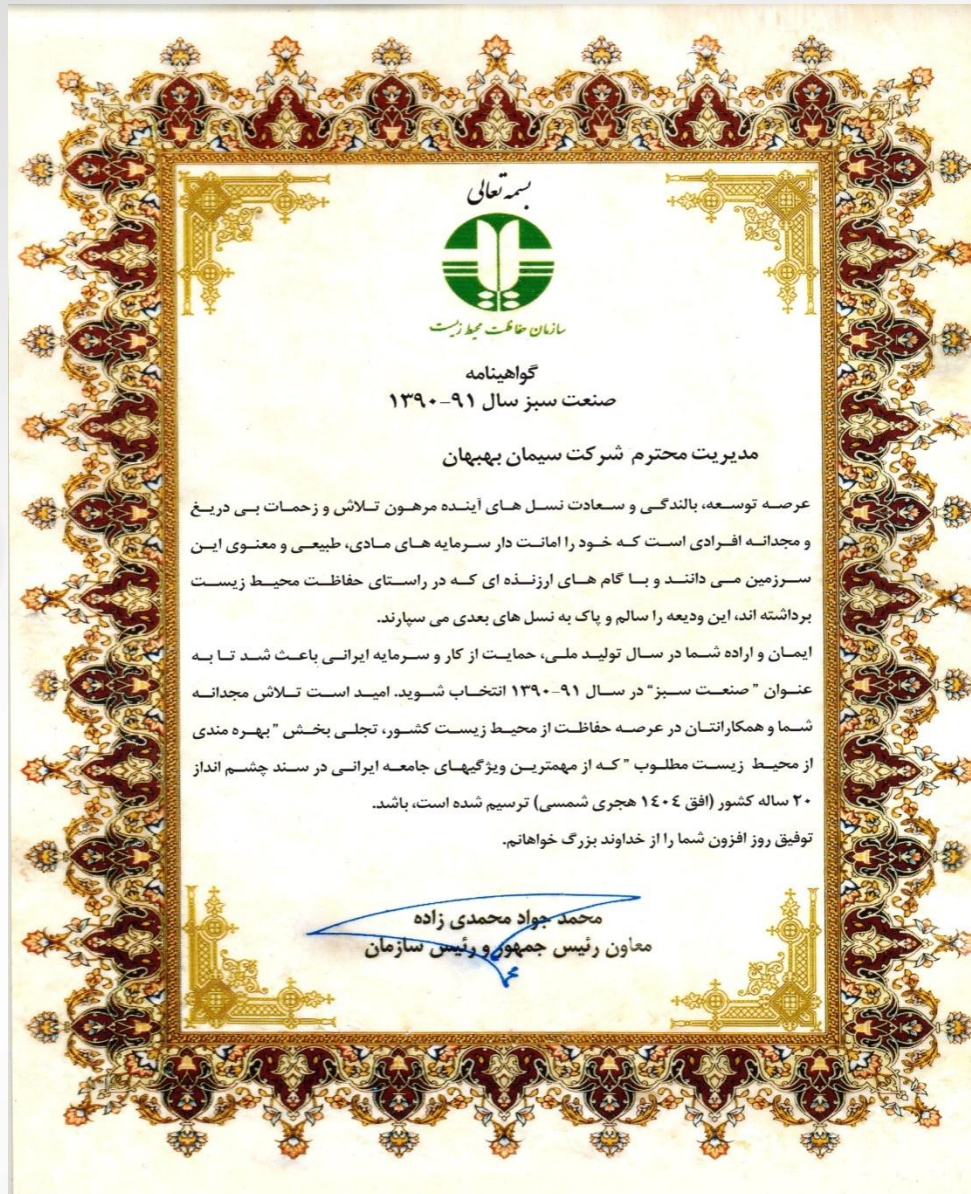 بسمه تعالی
سازمان حفاظت محیط زیست
گواهینامه
صنعت سبز سال ۹۱-۱۳۹۰
مدیریت محترم شرکت سیمان بهبهان
عرصه توسعه، بالندگی و سعادت نسل های آینده مرهون تلاش و زحمات بی دریغ
و مجدانه افرادی است که خود را امانت دار سرمایه های مادی، طبیعی و معنوی این
سرزمین می دانند و با گام های ارزنده ای که در راستای حفاظت محیط زیست
برداشته اند، این ودیعه را سالم و پاک به نسل های بعدی می سپارند.
ایمان و اراده شما در سال تولید ملی، حمایت از کار و سرمایه ایرانی باعث شد تا به
عنوان " صنعت سبز" در سال ۹۱-۱۳۹۰ انتخاب شوید. امید است تلاش مجدانه
شما و همکارانتان در عرصه حفاظت از محیط زیست کشور، تجلی بخش " بهره مندی
از محیط زیست مطلوب " که از مهمترین ویژگیهای جامعه ایرانی در سند چشم انداز
۲۰ ساله کشور (افق ۱٤۰٤ هجری شمسی) ترسیم شده است، باشد.
توفیق روز افزون شما را از خداوند بزرگ خواهانم.
محمد جواد محمدی زاده
معاون رئیس جمهور و رئیس سازمان